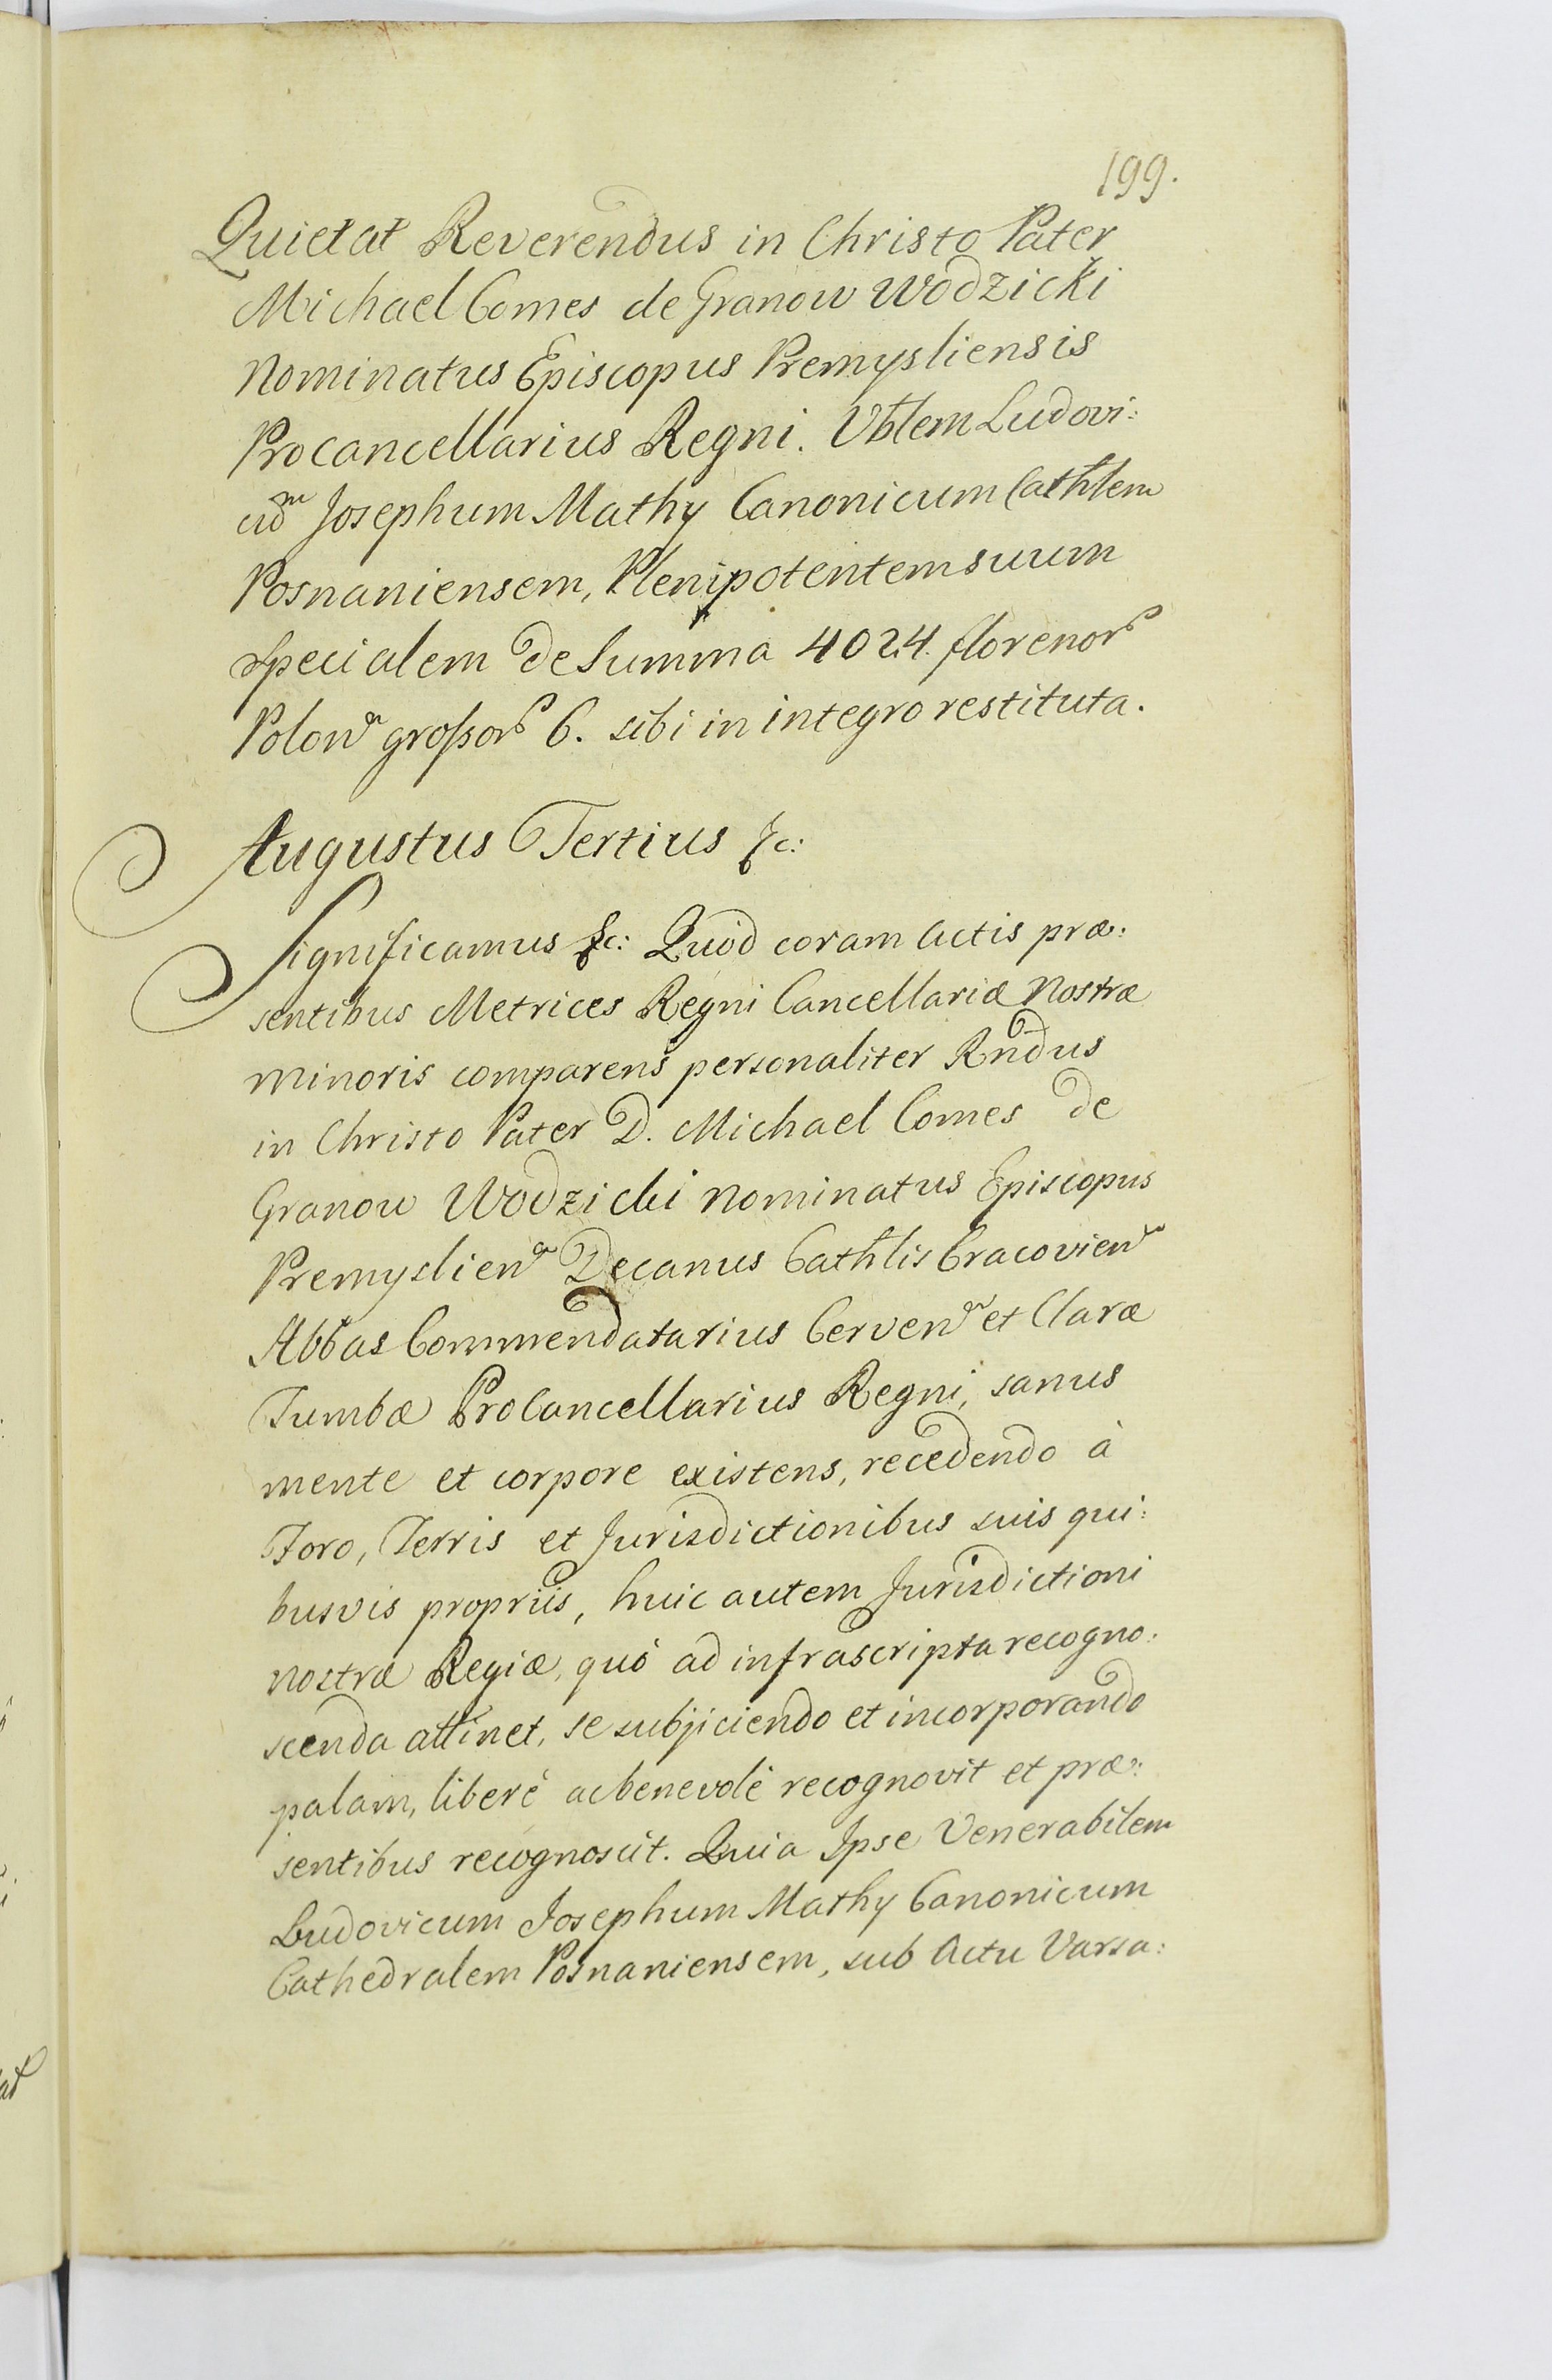 199.
Quietat Reverendus in Christo Pater
Michael Comes de Granow Wodzicki
Nominatus Episcopus Premysliensis
Procancellarius Regni. Vblem Ludovi:
cum Josephum Mathy Canonicum Cathlem
Posnaniensem, Plenipotentem suum
specialem de Summa 4024. florenor
Polon grossor 6. sibi in integro restituta.
Augustus Tertius &c:
Significamus &c: Quód coram Actis præ:
sentibus Metrices Regni Cancellariæ Nostræ
Minoris comparens personaliter Rndus
in Christo Pater D. Michael Comes de
Granow Wodzicki Nominatus Episcopus
Premyslien Decanus Cathlis Cracovien
Abbas Commendatarius Cerven et Claræ
Tumbæ ProCancellarius Regni, sanus
mente et corpore existens, recedendo à
Foro, Terris et Jurisdictionibus suis qui:
busvis propriis, huic autem Jurisdictioni
nostræ Regiæ, quó ad infrascripta recogno:
scenda attinet, se subjiciendo et incorporando
palam, liberé ac benevolé recognovit et præ:
sentibus recognoscit. Quia Ipse Venerabilem
Ludovicum Josephum Mathy Canonicum
Cathedralem Posnaniensem, sub Actu Varsa: